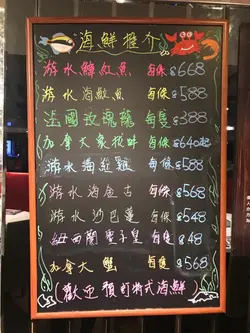 海鮮推介
游水鱆紅魚 每條 $668
游水海㪐魚 每條 $588
法國玫瑰龍 每隻 $388
加拿大象拔蚌 每條 $640起
游水海 每條 $588
游水海金古 每條 $568
游水沙巴蓬 每條 $548
紐西蘭聖子皇 每隻 $48
加拿大蟹 每隻 $568
(歡迎預訂各式海鮮